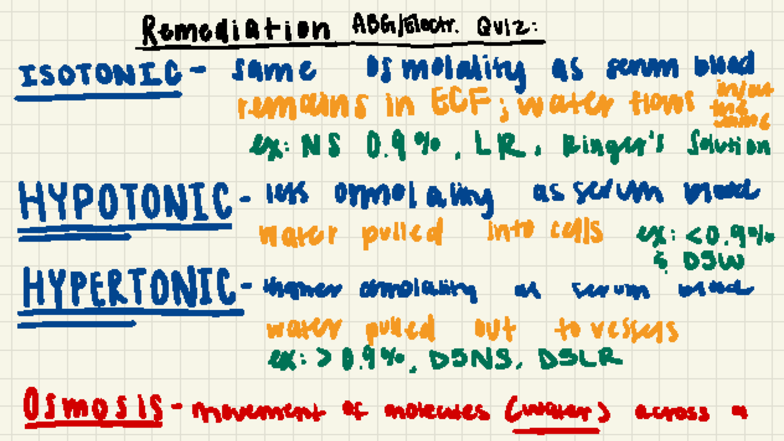 Remediation ABG/Electr. Quiz:
ISOTONIC - same osmolality as serum blood
remains in ECF; water flows in/out the same
ex: NS 0.9%, LR, Ringer's Solution
HYPOTONIC - less osmolality as serum blood
water pulled into cells ex: <0.9%
& D5W
HYPERTONIC - higher osmolality as serum blood
water pulled out to vessels
ex: >0.9%, D5NS, D5LR
Osmosis - movement of molecules (water) across a